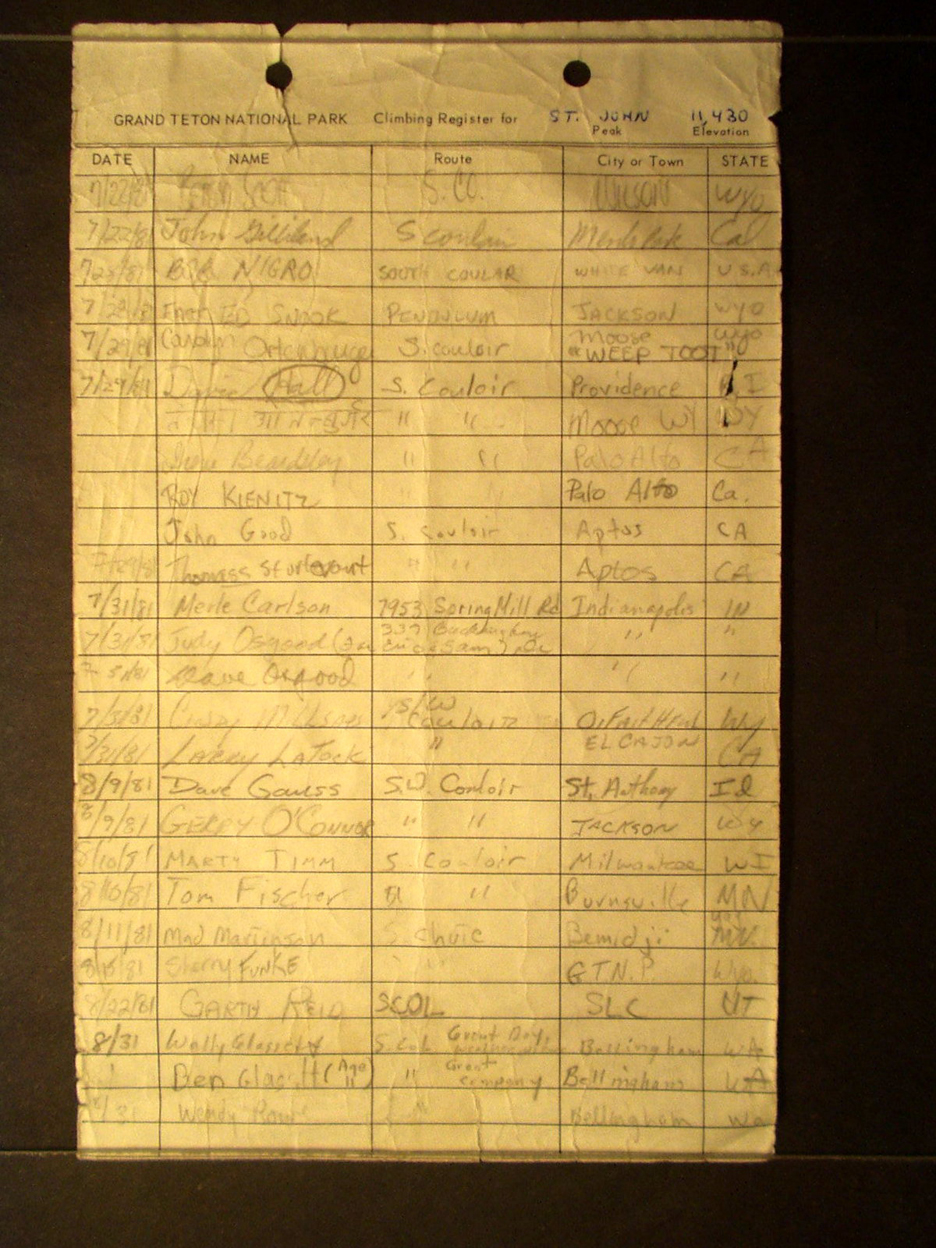 GRAND TETON NATIONAL PARK Climbing Register for ST. JOHN 11,430
Peak Elevation
DATE NAME Route City or Town STATE
S. CO. WILSON WYO
7/22/81 John Gilliland S couloir Menlo Park Cal
BOB NIGRO SOUTH COULAR WHITE VAN U.S.A
ED SNOOK PENDULUM JACKSON WYO
7/29/81 Carolyn Ortenburger S. couloir Moose Wyo
"WEEP TOOT"
7/29/81 David Hall S. Couloir Providence RI
" " Moose WY WY
Irene Beardsley " " Palo Alto CA
ROY KIENITZ " " Palo Alto Ca.
John Good S. Couloir Aptos CA
7/29/81 Thomass Sturtevant " " Aptos CA
7/31/81 Merle Carlson 7953 Spring Mill Rd Indianapolis IN
7/31/81 Judy Osgood 339 " "
Dave Osgood " " "
7/31/81 S/W Couloir Wy
7/31/81 LARRY LATOCK " EL CAJON CA
8/9/81 Dave Gauss S.W. Couloir St. Anthony Id
8/9/81 GERRY O'CONNOR " " JACKSON Wy
8/10/81 MARTY TIMM S. Couloir Milwaukee WI
8/10/81 Tom Fischer " " Burnsville MN
8/11/81 Martinson S. Chute Bemidji MN.
Sherry FUNKE " " G.T.N.P. Wyo.
8/22/81 GARTH REID SCOL SLC UT
8/31 Wally S. Col. Great Day, Bellingham WA
Ben (Age 11) " Great company Bellingham WA
8/31 Wendy " Bellingham Wa